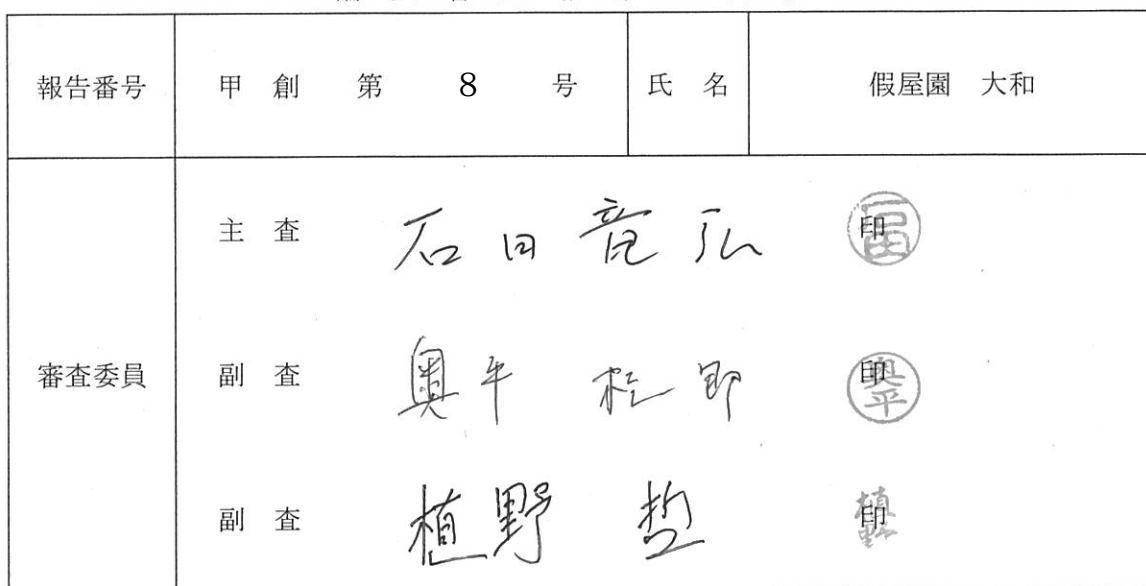 報告番号 甲 創 第 8 号 氏 名 假屋園 大和
審査委員
主 査 石田竜弘 印
副 査 奥平 郎 印 奥平
副 査 植野 哲 印 植野